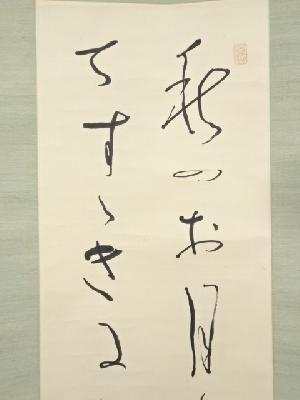 秋のお月
てすゝきに